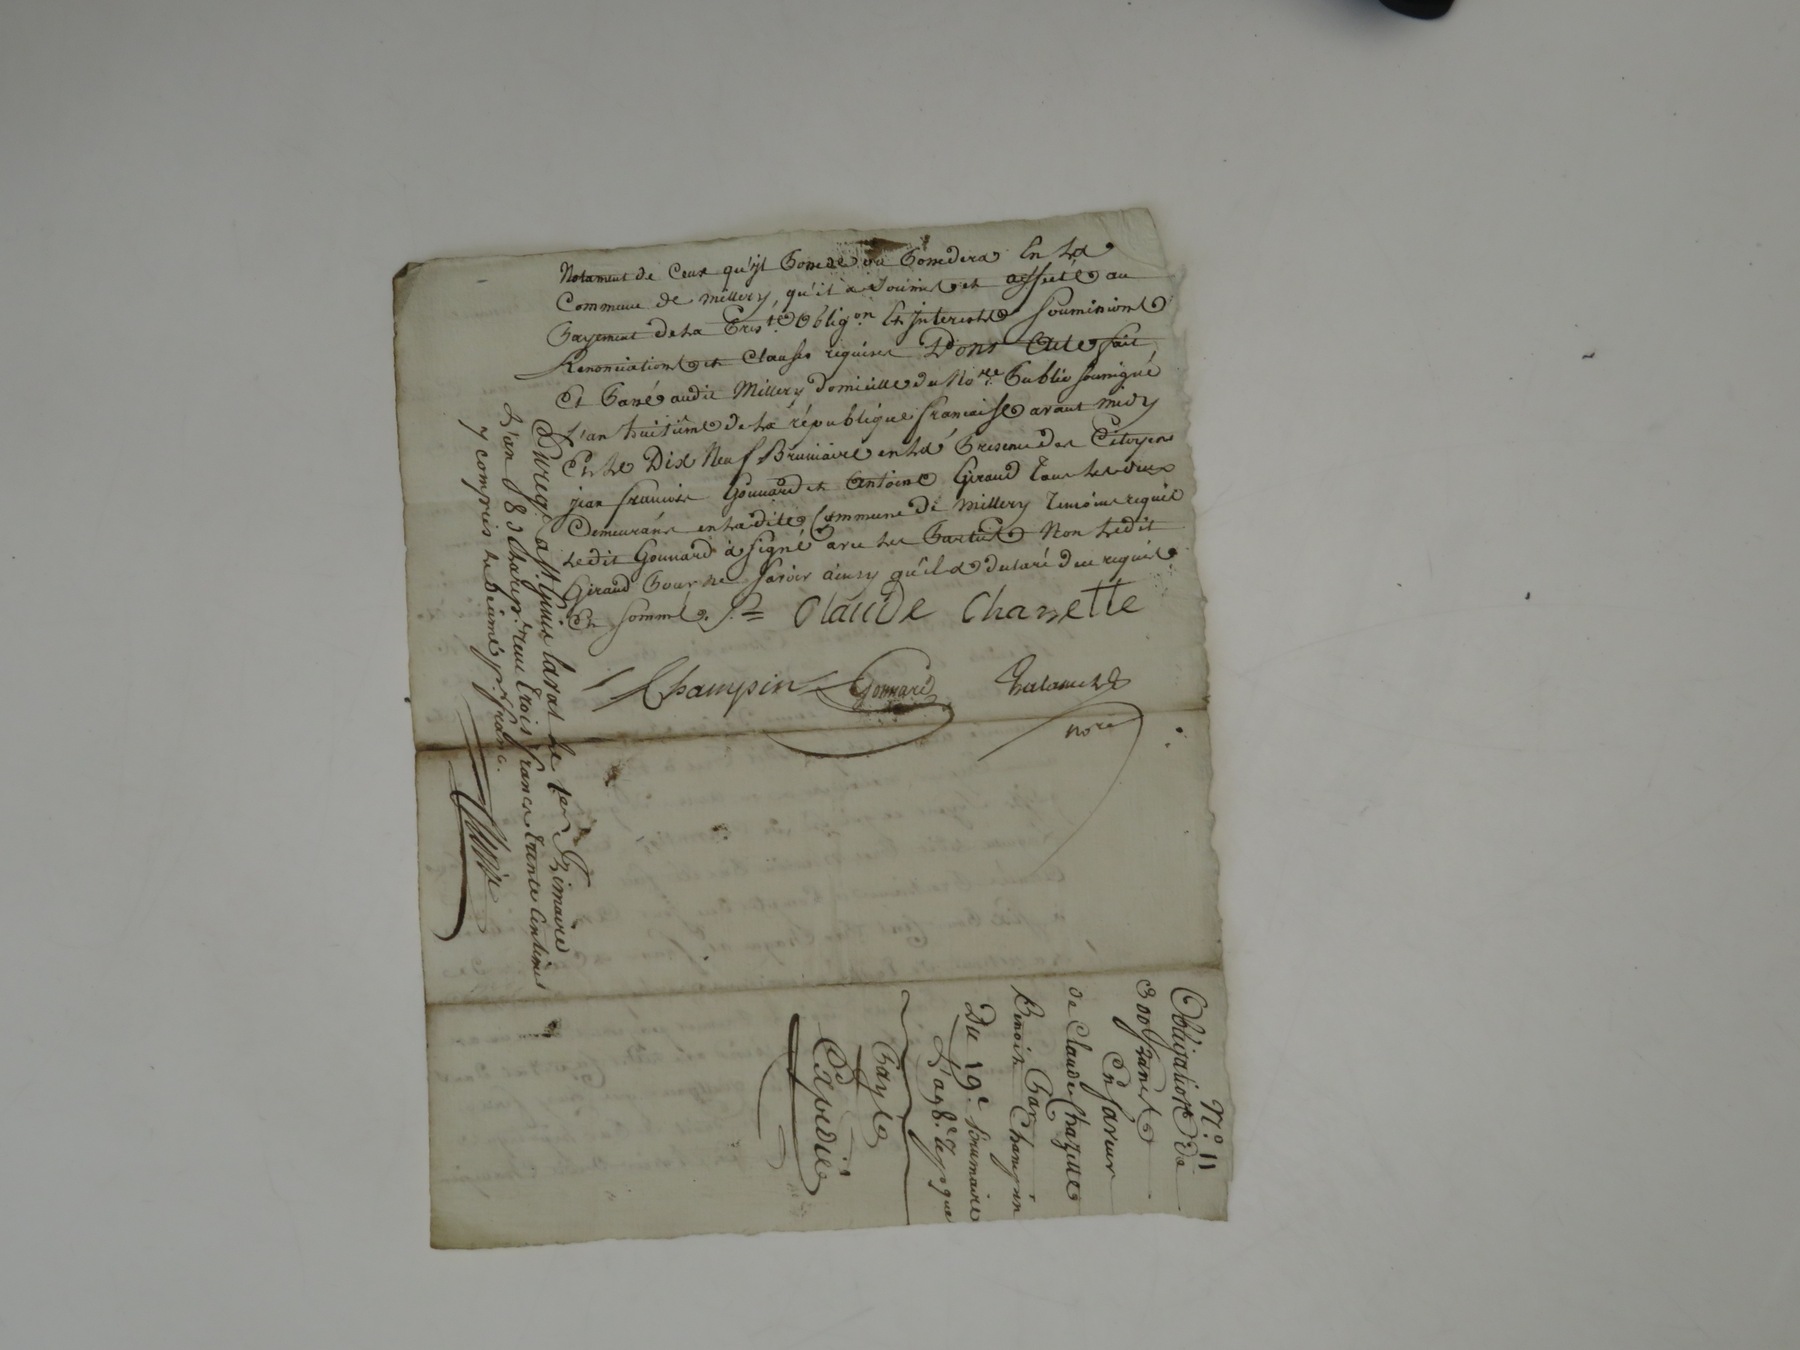 Notament de Ceux qu'jl Possede ou Possedera En La
Commune de Millery, qu'il a soumis et affecté au
Payement de La Prste. Obligon. Et Interests Soumissions
Renonciations et Clauses requises Dont Acte fait
Et Passé audit Millery Domicille du Nore. Public soussigné
L'an huitieme de La république francaise avant midy
Et Le Dix Neuf Brumaire en La Presence des Citoyens
jean francois Gonnard et Antoine Giraud Tous Les deux
Demeurans en Ladite Commune de Millery Temoins requis
Ledit Gonnard à signé avec Les Parties Non Ledit
Giraud Pour ne savoir ainsy qu'il a declaré de ce requis
Et sommé.
Claude Chazette
Champin Gonnard
nore
Enregé. a St. Genis Laval le 1er. frimaire
L'an 8 trois francs trente Centimes
y compris le Decime pr. franc.
N° 11
Obligation de
300 francs
En faveur
de Claude Chazette
Par
Benoit Champin
Du 19e Brumaire
L'an 8e.
Payé
Expedié